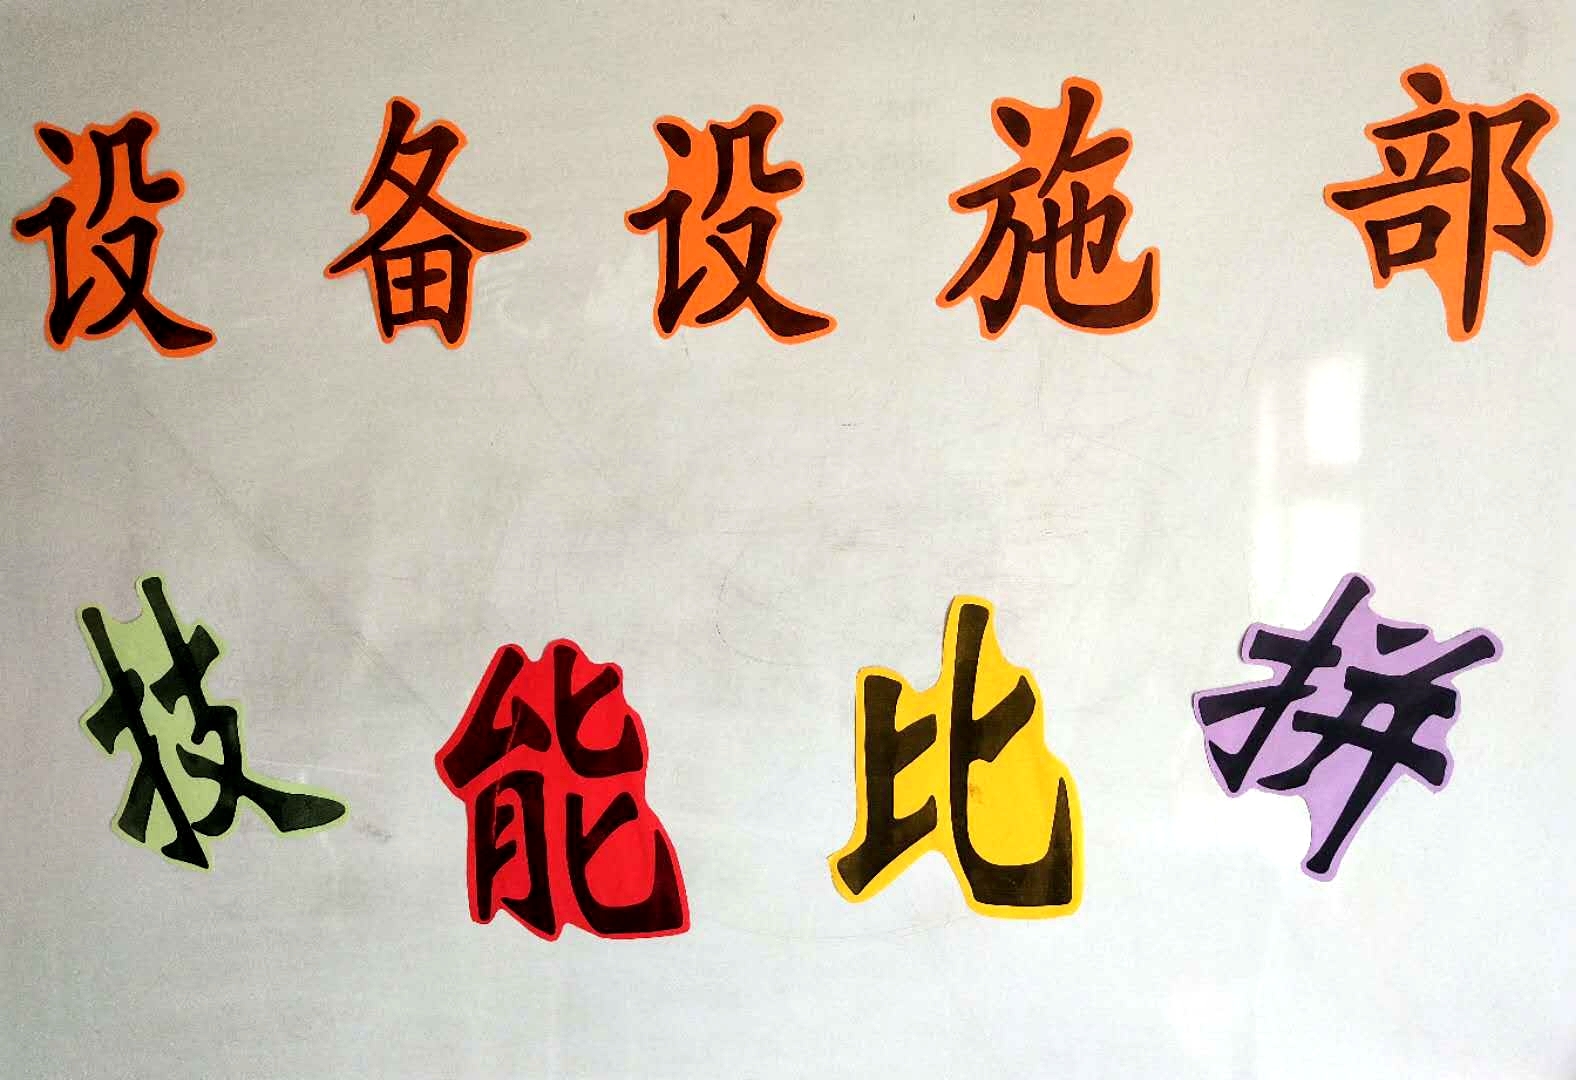 设备设施部
技能比拼